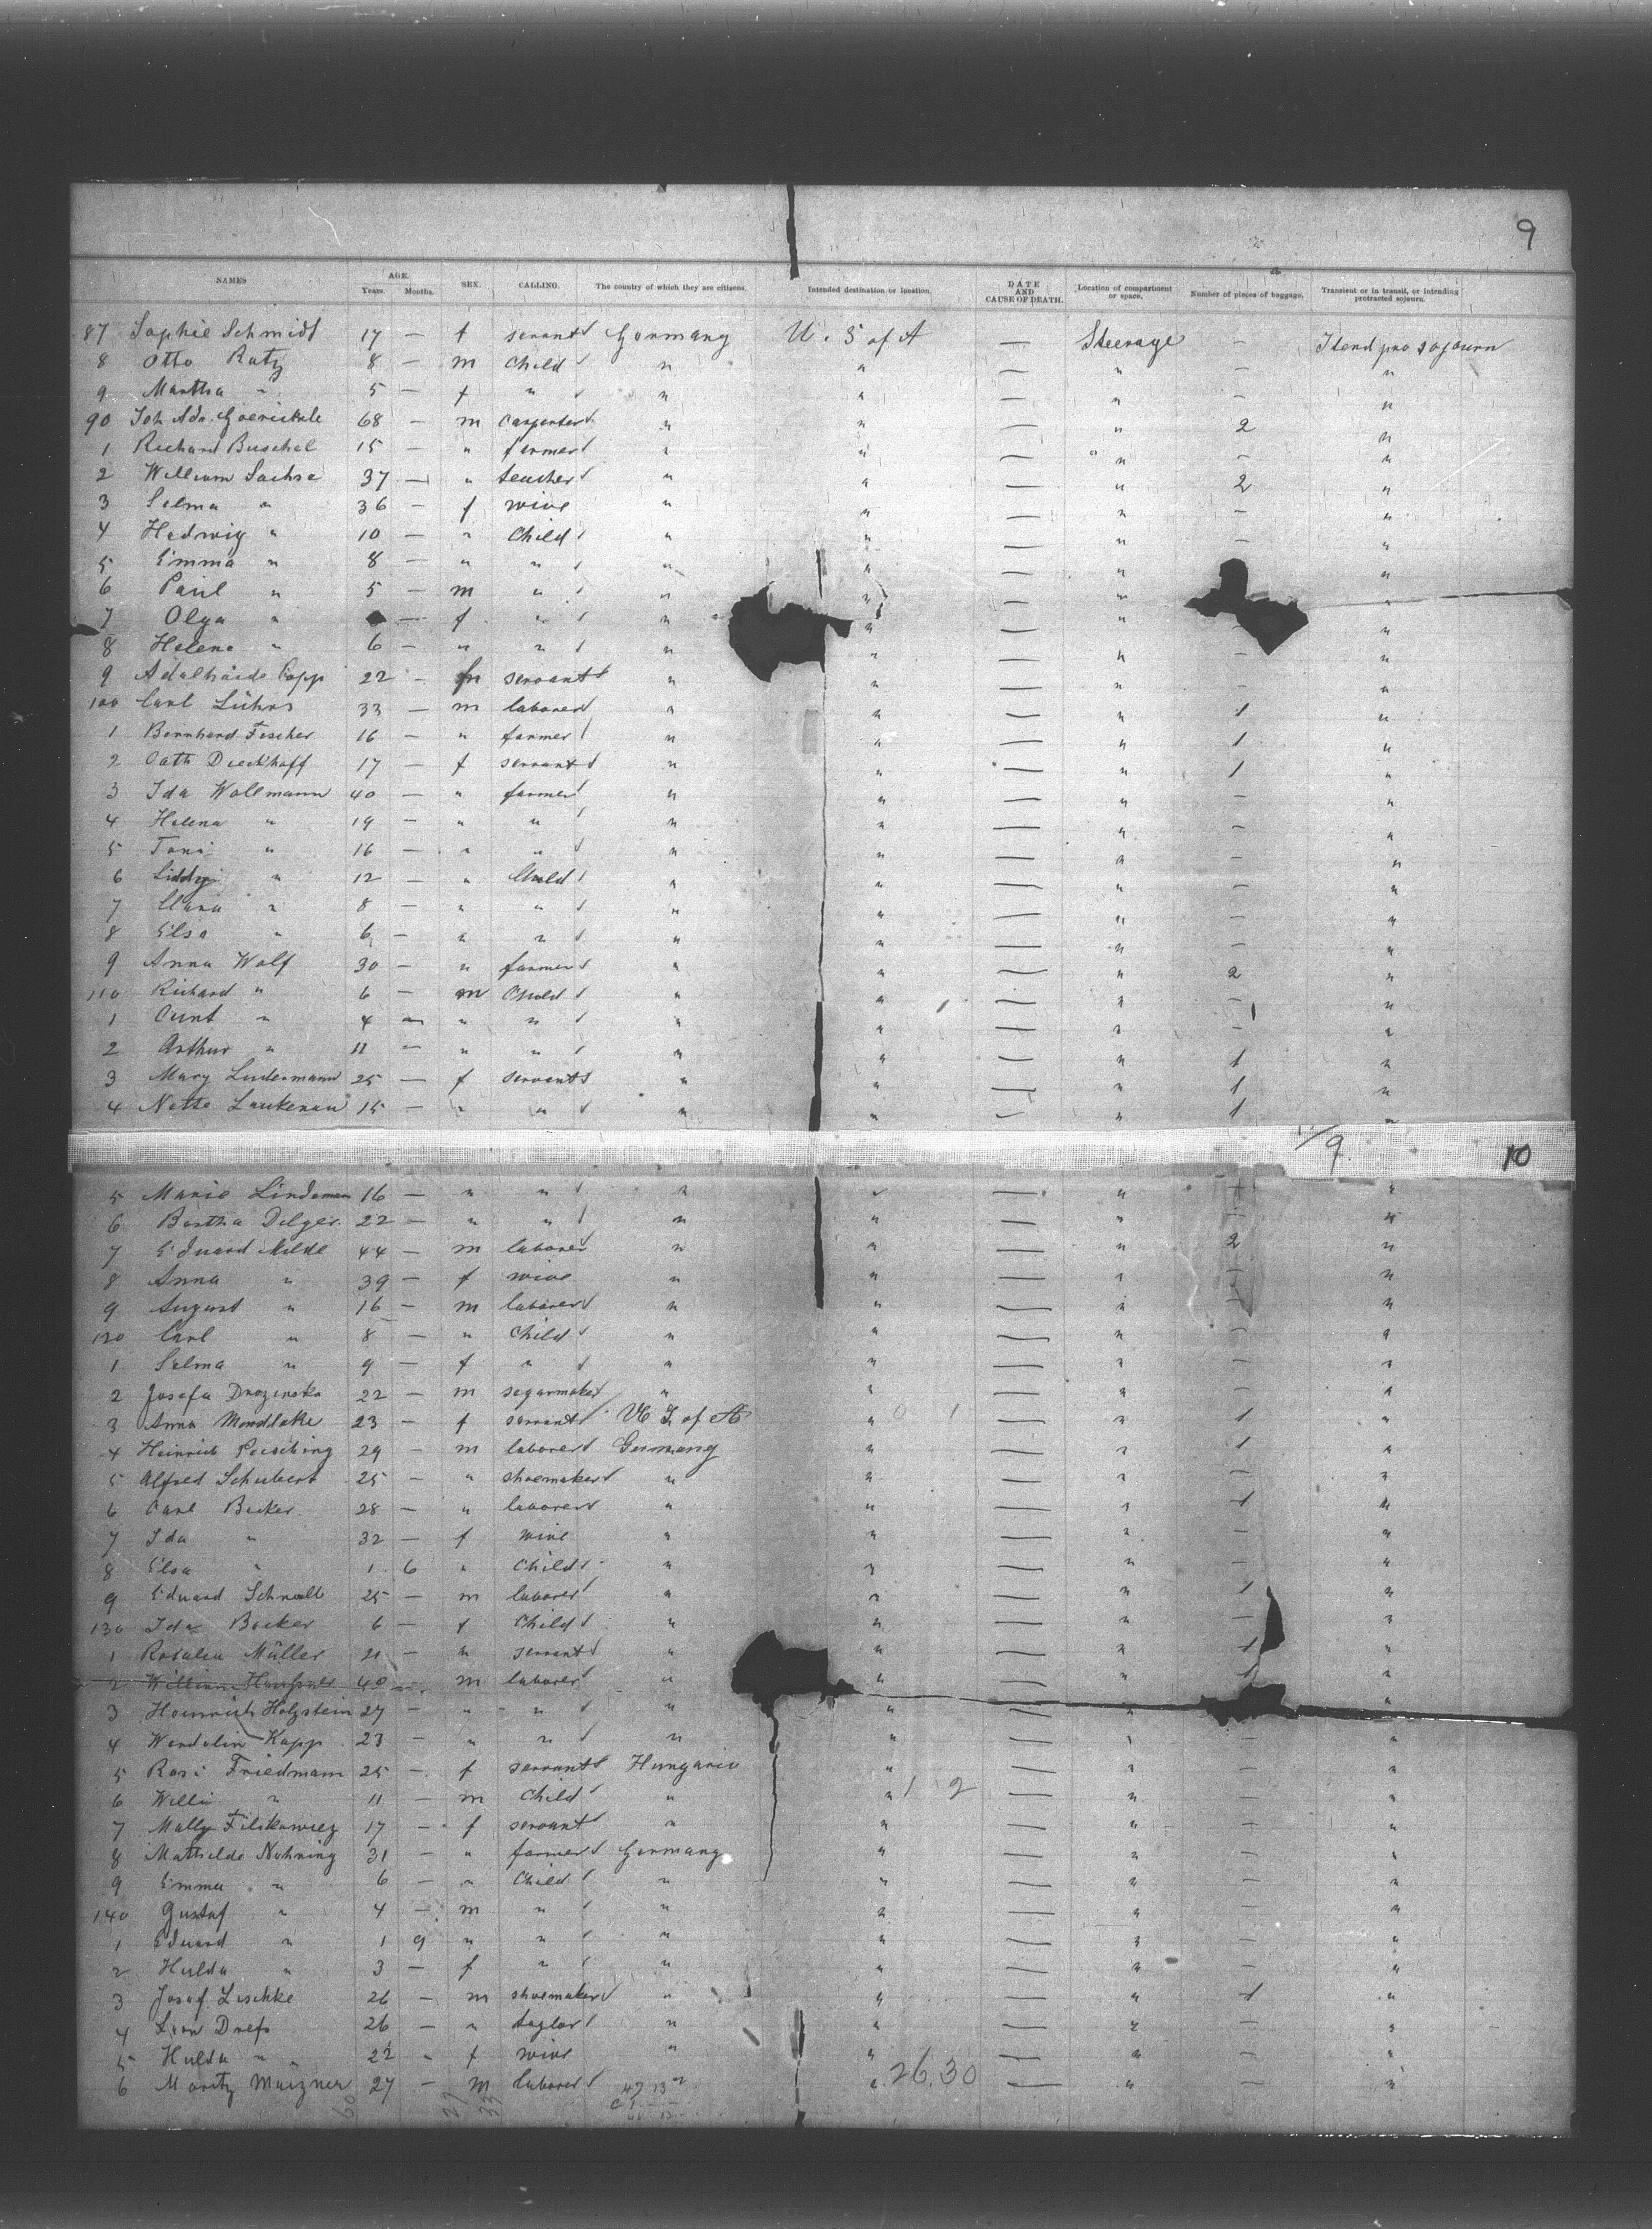 9
NAMES AGE. Years. Months. SEX. CALLING. The country of which they are citizens. Intended destination or location. DATE AND CAUSE OF DEATH. Location of compartment or space. Number of pieces of baggage. Transient or in transit, or intending protracted sojourn.
87 Sophie Schmidt 17 — f servant Germany U. S of A — Steerage — Itend pro sojourn
8 Otto Ratz 8 — m Child " " — " — "
9 Martha " 5 — f " " " — " — "
90 Joh. Ado. 68 — m carpenter " " — " 2 "
1 Richard Buschel 15 — " farmer " " — " — "
2 William Sachse 37 — " teacher " " — " 2 "
3 Selma " 36 — f wive " " — " — "
4 Hedwig " 10 — " Child " " — " — "
5 Emma " 8 — " " " " — " "
6 Paul " 5 — m " " " — " "
7 Olga " — f " " " — " — "
8 Helene " 6 — " " " " — " — "
9 Adalhaide Popp 22 — servant " " — " — "
100 Carl Lührs 33 — m laborer " " — " 1 "
1 Bernhard Fischer 16 — " farmer " " — " 1 "
2 Cath Dieckhoff 17 — f servant " " — " 1 "
3 Ida Wollmann 40 — " farmer " " — " — "
4 Helena " 19 — " " " " — " — "
5 Toni " 16 — " " " " — " — "
6 " 12 — " Child " " — " — "
7 Clara " 8 — " " " " — " — "
8 Elsa " 6 — " " " " — " — "
9 Anna Wolf 30 — " farmer " " — " 2 "
110 Richard " 6 — m Child " " — " — "
1 Curt " 4 — " " " " — " — "
2 Arthur " 11 — " " " " — " 1 "
3 Mary Ludermann 25 — f servant " " — " 1 "
4 Netta Laukenau 15 — " " " " — " 1 "
9 10
5 Marie Lindeman 16 — " " " " — " "
6 Bertha Dilger 22 — " " " " — " — "
7 Eduard Milde 44 — m laborer " " — " 2 "
8 Anna " 39 — f wive " " — " — "
9 August " 16 — m laborer " " — " — "
120 Carl " 8 — " Child " " — " — "
1 Selma " 9 — f " " " — " — "
2 Josefa Drozinska 22 — m segarmaker " " — " — "
3 Anna Mondlake 23 — f servant U S of A " 0 1 — " 1 "
4 Heinrich 29 — m laborer Germany " — " 1 "
5 Alfred Schubert 25 — " shoemaker " " — " — "
6 Carl Becker 28 — " laborer " " — " 1 "
7 Ida " 32 — f wive " " — " — "
8 Elsa " 1 6 " Child " " — " — "
9 Eduard 25 — m laborer " " — " 1 "
130 Ida Becker 6 — f Child " " — " — "
1 Rosalia Müller 21 — " servant " " — " 1 "
2 William 40 — m laborer " " — " 1 "
3 Heinrich Holzstein 27 — " " " " — " "
4 Wendelin Kapp 23 — " " " " — " — "
5 Rosi Friedmann 25 — f servant Hungaria " — " — "
6 Willi " 11 — m Child " " 1 2 — " — "
7 Mally Filikowicz 17 — f servant " " — " — "
8 Mathilde Nehring 31 — " farmer Germany " — " — "
9 Emma " 6 — " Child " " — " — "
140 Gustaf " 4 — m " " " — " — "
1 Eduard " 1 9 " " " " — " — "
2 Hulda " 3 — f " " " — " — "
3 Josef Lischke 26 — m shoemaker " " — " 1 "
4 26 — " taylor " " — " — "
5 Hulda " 22 — f wive " " — " — "
6 Moritz Maizner 27 — m laborer " 26.30 — " — "
60 27 33